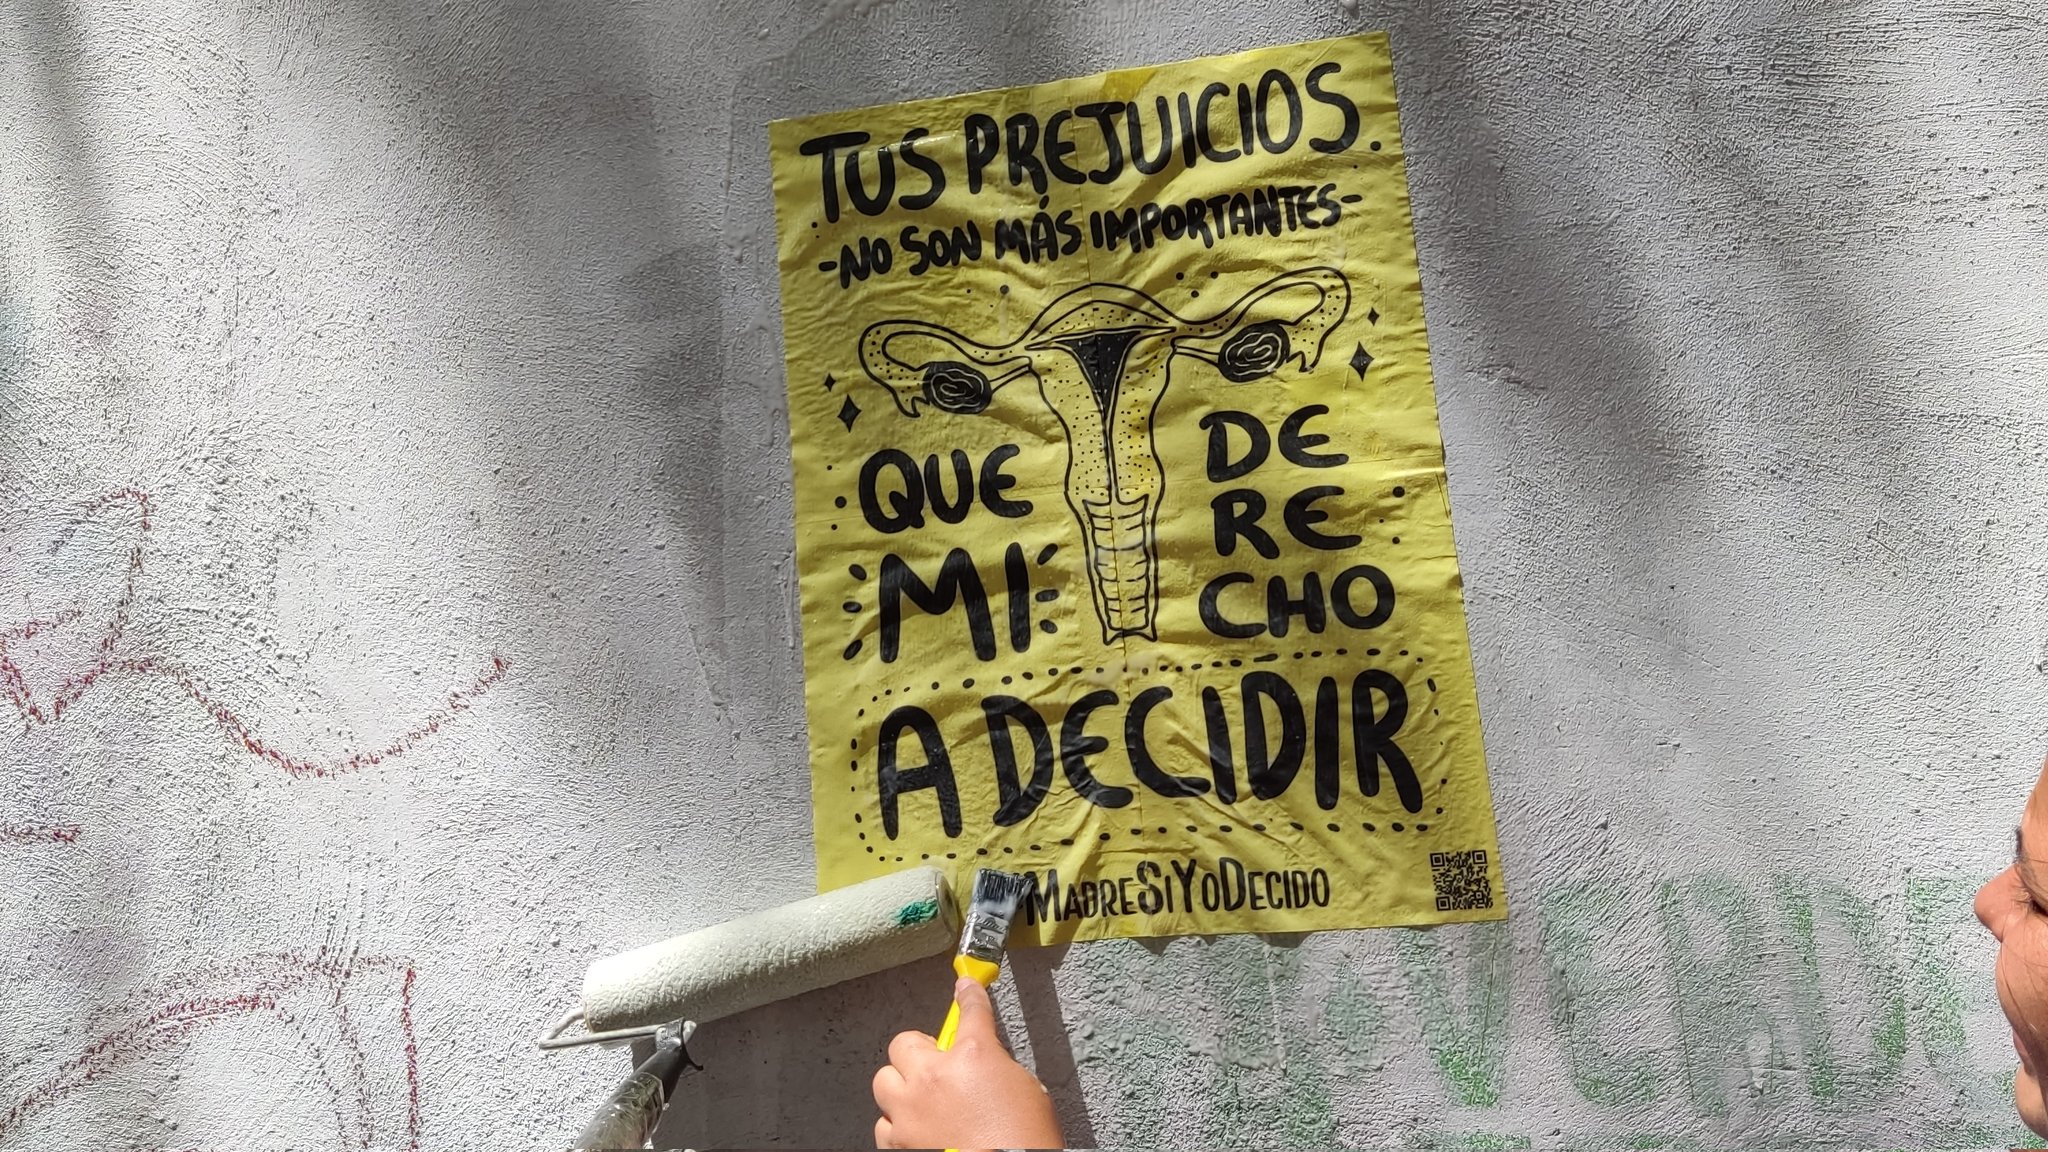 TUS PREJUICIOS
-NO SON MÁS IMPORTANTES-
QUE
MI
DE
RE
CHO
A DECIDIR
MADRESIYODECIDO